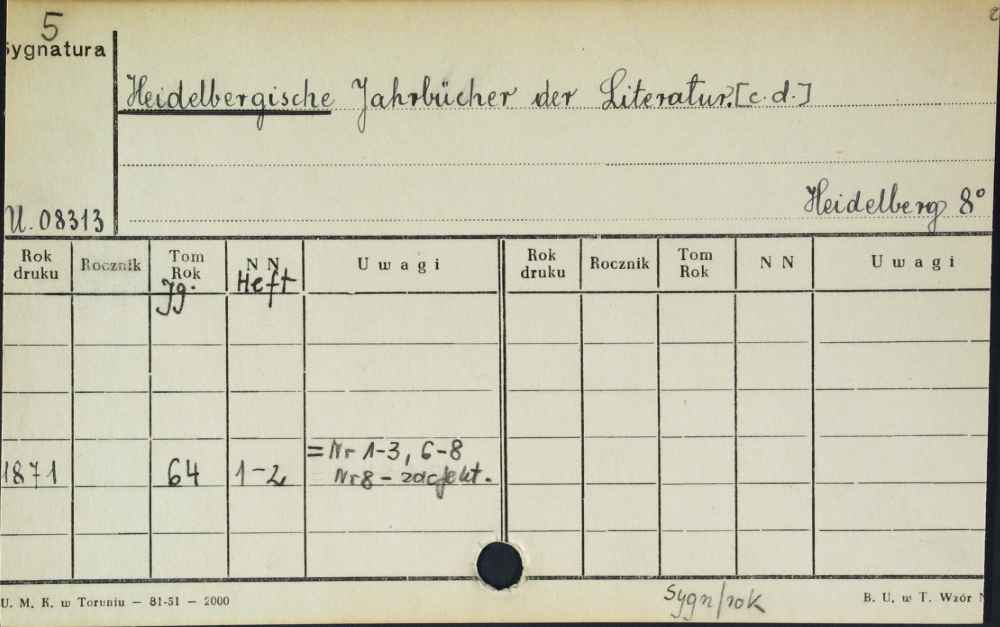 5
Sygnatura
Heidelbergische Jahrbücher der Literatur. [c.d.]
Heidelberg 8°
U. 08313
Rok druku Rocznik Tom Rok Jg. N N Heft Uwagi Rok druku Rocznik Tom Rok N N Uwagi
= Nr 1-3, 6-8
1871 64 1-2 Nr 8 - zdefekt.
U. M. K. w Toruniu — 81-51 — 2000
Sygn/rok
B. U. w T. Wzór